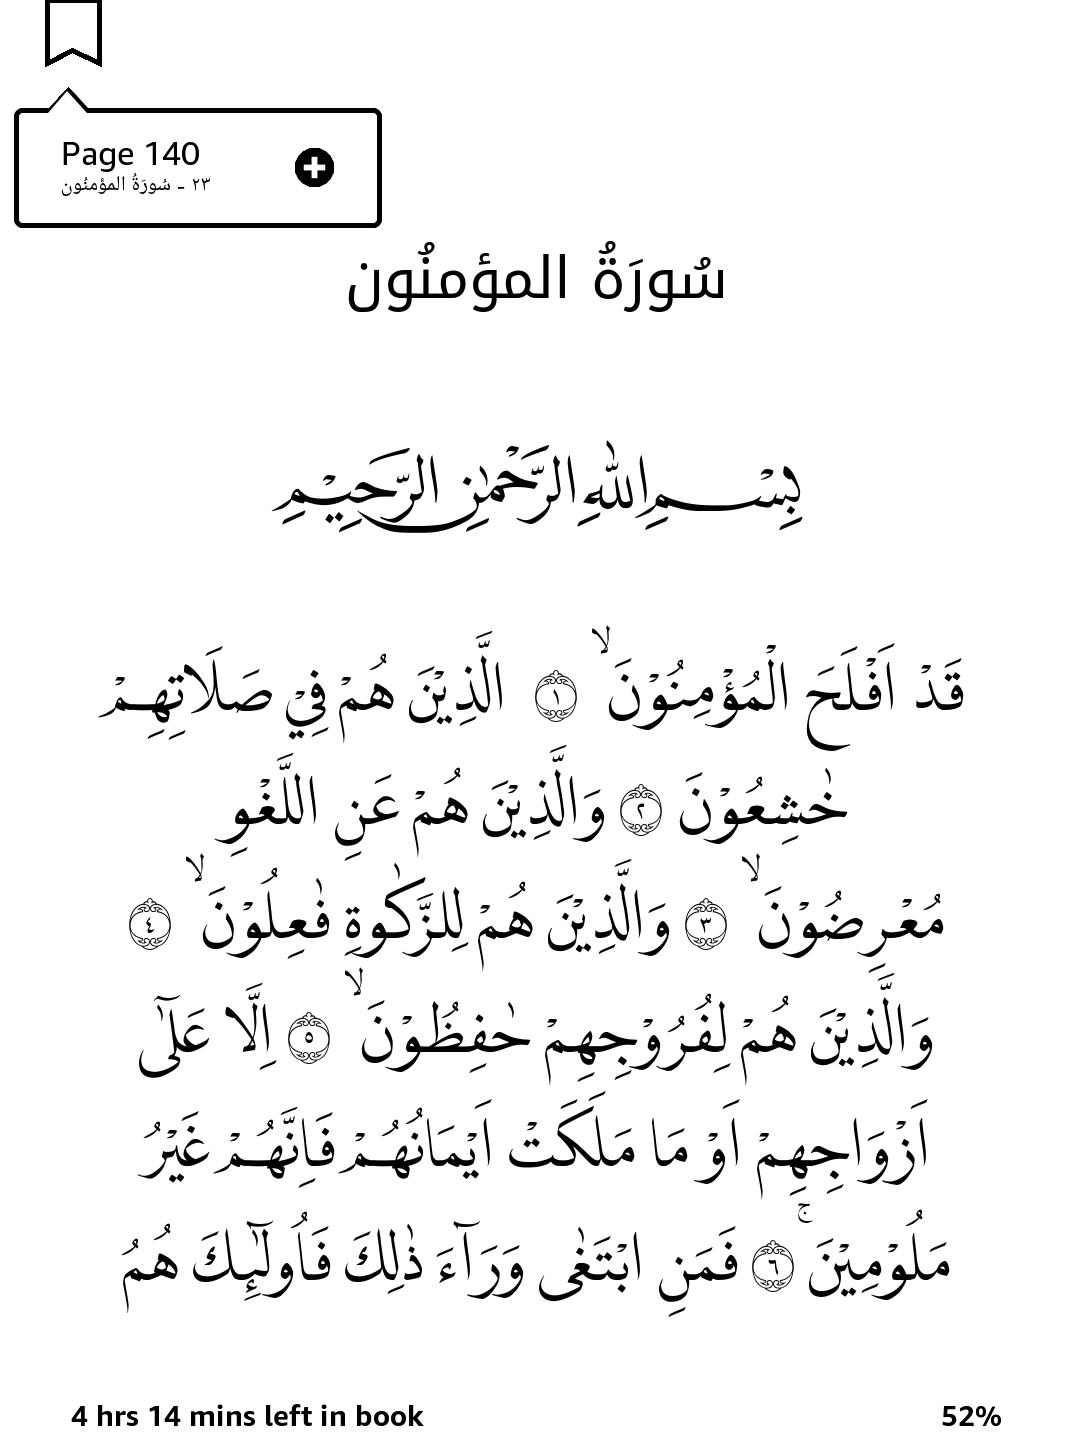 Page 140
٢٣ - سُورَةُ المؤمنُون
سُورَةُ المؤمنُون
بِسْمِ اللّٰهِ الرَّحْمٰنِ الرَّحِيْمِ
قَدْ اَفْلَحَ الْمُؤْمِنُوْنَ ۙ ١ الَّذِيْنَ هُمْ فِيْ صَلَاتِهِمْ
خٰشِعُوْنَ ٢ وَالَّذِيْنَ هُمْ عَنِ اللَّغْوِ
مُعْرِضُوْنَ ۙ ٣ وَالَّذِيْنَ هُمْ لِلزَّكٰوةِ فٰعِلُوْنَ ۙ ٤
وَالَّذِيْنَ هُمْ لِفُرُوْجِهِمْ حٰفِظُوْنَ ۙ ٥ اِلَّا عَلٰٓى
اَزْوَاجِهِمْ اَوْ مَا مَلَكَتْ اَيْمَانُهُمْ فَاِنَّهُمْ غَيْرُ
مَلُوْمِيْنَ ۚ ٦ فَمَنِ ابْتَغٰى وَرَآءَ ذٰلِكَ فَاُولٰٓئِكَ هُمُ
4 hrs 14 mins left in book
52%